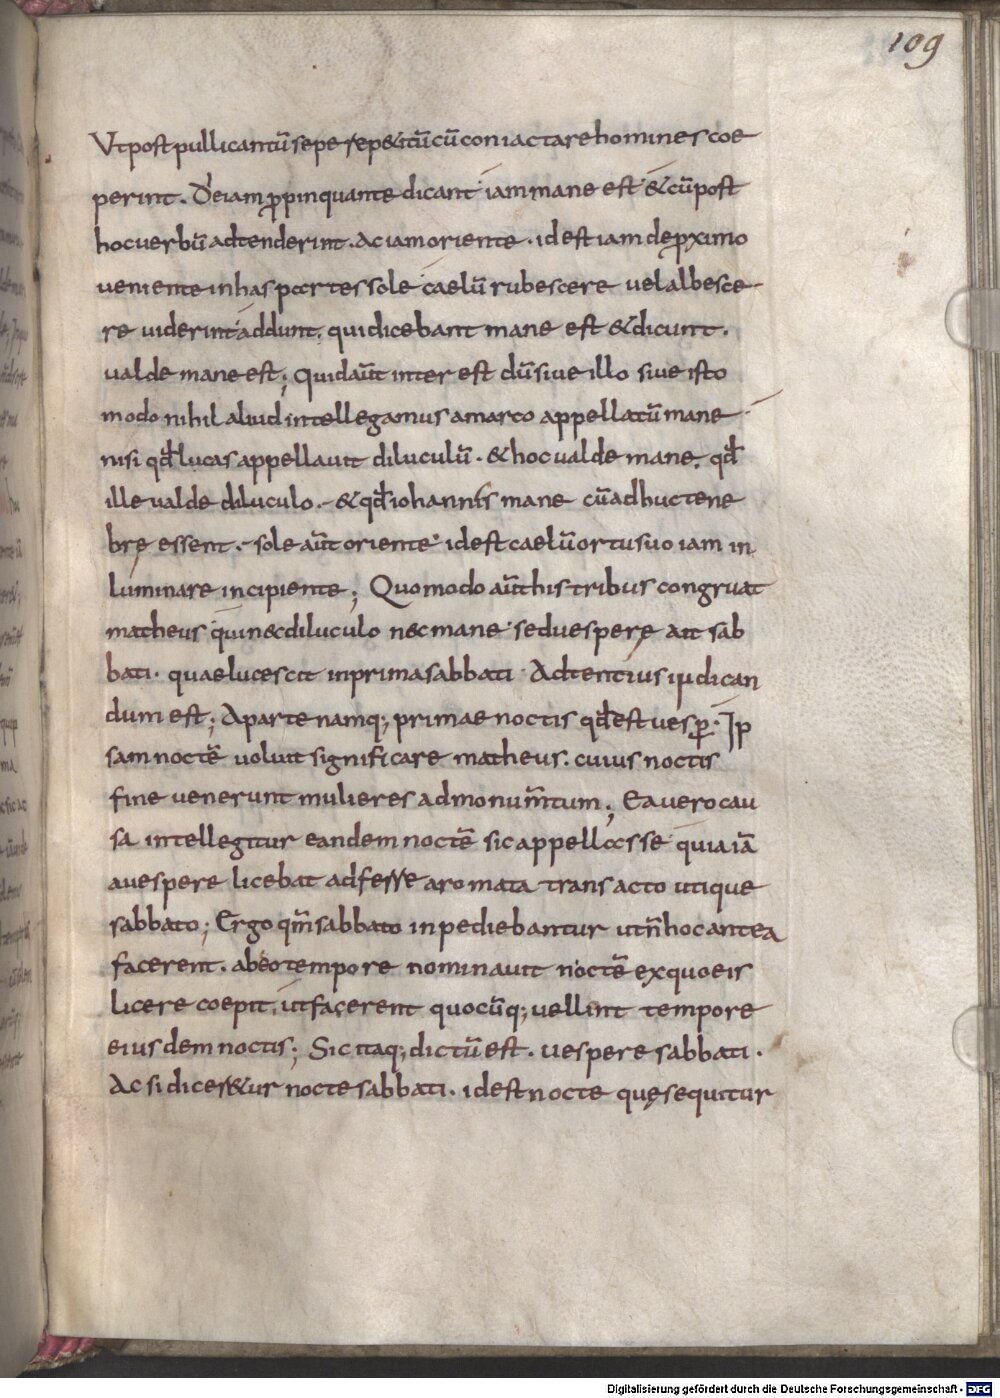 109
Vt post pulli cantū sepe repetitū cū coniactare homines coe
perint. De iam ꝓpinquante dicant iam mane est & cū post
hoc uerbū adtenderint. Ac iam oriente. id est iam de ꝓximo
ueniente in has partes sole caelū rubescere uel albesce
re uiderint addunt. qui dicebant mane est & dicunt.
ualde mane est; Quid aūt inter est dū siue illo siue isto
modo nihil aliud intellegamus a marco appellatū mane
nisi qđ lucas appellauit diluculū. & hoc ualde mane. qđ
ille ualde diluculo. & qđ iohannis mane cū adhuc tene
brę essent. sole aūt oriente id est caelū ortu suo iam in
luminare incipiente; Quomodo aūt his tribus congruat
matheus qui nec diluculo nec mane sed uespere ait sab
bati. quae lucescit in prima sabbati Adtentius iudican
dum est; A parte namq; primae noctis qđ est uesꝑ. Ip
sam noctē uoluit significare matheus. cuius noctis
fine uenerunt mulieres ad monum̄tum; Ea uero cau
sa intellegitur eandem noctē sic appellasse quia iā
a uespere licebat adfesse aromata transacto utique
sabbato; Ergo qm̄ sabbato inpediebantur ut n̄ hoc antea
facerent. ab eo tempore nominauit noctē ex quo eis
licere coepit, ut facerent quocūq; uellint tempore
eiusdem noctis; Sic itaq; dictū est. uespere sabbati.
Ac si dices&ur nocte sabbati. id est nocte quę sequitur
Digitalisierung gefördert durch die Deutsche Forschungsgemeinschaft - DFG